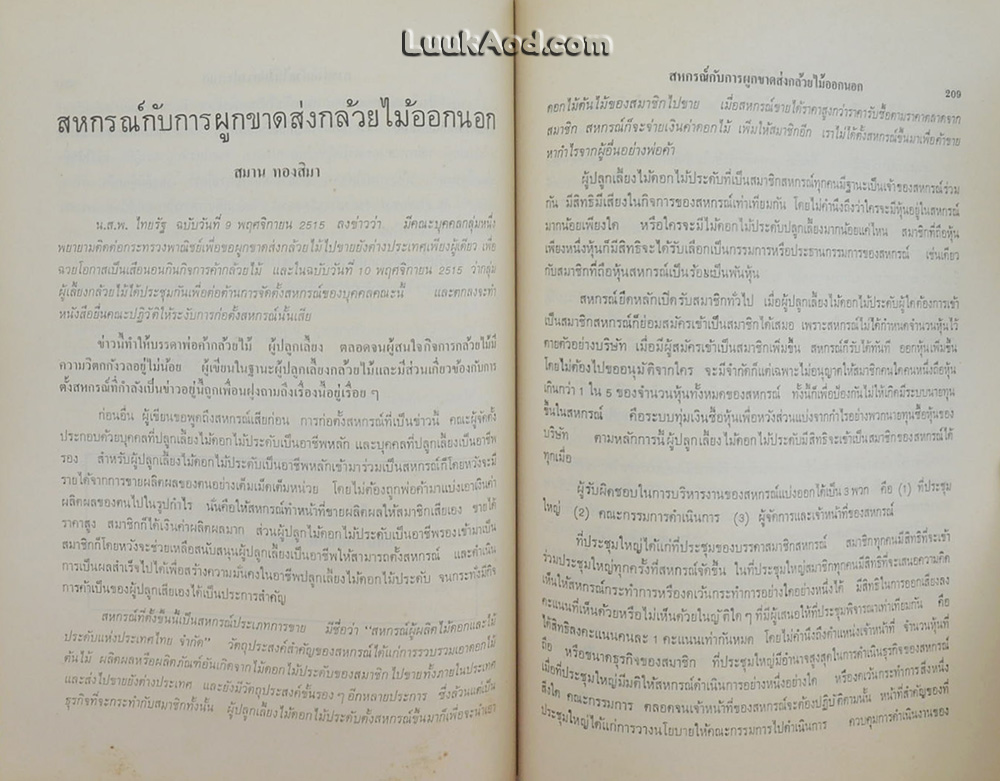 LuukAod.com
สหกรณ์กับการผูกขาดส่งกล้วยไม้ออกนอก
สมาน ทองสิมา
น.ส.พ. ไทยรัฐ ฉบับวันที่ 9 พฤศจิกายน 2515 ลงข่าวว่า มีคณะบุคคลกลุ่มหนึ่ง
พยายามติดต่อกระทรวงพาณิชย์เพื่อขอผูกขาดส่งกล้วยไม้ไปขายยังต่างประเทศเพียงผู้เดียว เพื่อ
ฉวยโอกาสเป็นเสือนอนกินกิจการค้ากล้วยไม้ และในฉบับวันที่ 10 พฤศจิกายน 2515 ว่ากลุ่ม
ผู้เลี้ยงกล้วยไม้ได้ประชุมกันเพื่อต่อต้านการจัดตั้งสหกรณ์ของบุคคลคณะนี้ และตกลงจะทำ
หนังสือยื่นคณะปฏิวัติให้ระงับการก่อตั้งสหกรณ์นั้นเสีย
ข่าวนี้ทำให้บรรดาพ่อค้ากล้วยไม้ ผู้ปลูกเลี้ยง ตลอดจนผู้สนใจกิจการกล้วยไม้มี
ความวิตกกังวลอยู่ไม่น้อย ผู้เขียนในฐานะผู้ปลูกเลี้ยงกล้วยไม้และมีส่วนเกี่ยวข้องกับการ
ตั้งสหกรณ์ที่กำลังเป็นข่าวอยู่นี้ถูกเพื่อนฝูงถามถึงเรื่องนี้อยู่เรื่อย ๆ
ก่อนอื่น ผู้เขียนขอพูดถึงสหกรณ์เสียก่อน การก่อตั้งสหกรณ์ที่เป็นข่าวนี้ คณะผู้จัดตั้ง
ประกอบด้วยบุคคลที่ปลูกเลี้ยงไม้ดอกไม้ประดับเป็นอาชีพหลัก และบุคคลที่ปลูกเลี้ยงเป็นอาชีพ
รอง สำหรับผู้ปลูกเลี้ยงไม้ดอกไม้ประดับเป็นอาชีพหลักเข้ามาร่วมเป็นสหกรณ์ก็โดยหวังจะมี
รายได้จากการขายผลิตผลของตนอย่างเต็มเม็ดเต็มหน่วย โดยไม่ต้องถูกพ่อค้ามาแบ่งเอาเงินค่า
ผลิตผลของตนไปในรูปกำไร นั่นคือให้สหกรณ์ทำหน้าที่ขายผลิตผลให้สมาชิกเสียเอง ขายได้
ราคาสูง สมาชิกก็ได้เงินค่าผลิตผลมาก ส่วนผู้ปลูกไม้ดอกไม้ประดับเป็นอาชีพรองเข้ามาเป็น
สมาชิกก็โดยหวังจะช่วยเหลือสนับสนุนผู้ปลูกเลี้ยงเป็นอาชีพให้สามารถตั้งสหกรณ์ และดำเนิน
การเป็นผลสำเร็จไปได้เพื่อสร้างความมั่นคงในอาชีพปลูกเลี้ยงไม้ดอกไม้ประดับ จนกระทั่งมีกิจ
การค้าเป็นของผู้ปลูกเสียเองได้เป็นประการสำคัญ
สหกรณ์ที่ตั้งขึ้นนี้เป็นสหกรณ์ประเภทการขาย มีชื่อว่า "สหกรณ์ผู้ผลิตไม้ดอกและไม้
ประดับแห่งประเทศไทย จำกัด" วัตถุประสงค์สำคัญของสหกรณ์ได้แก่การรวบรวมเอาดอกไม้
ต้นไม้ ผลิตผลหรือผลิตภัณฑ์อันเกิดจากไม้ดอกไม้ประดับของสมาชิกไปขายทั้งภายในประเทศ
และส่งไปขายยังต่างประเทศ และยังมีวัตถุประสงค์ขั้นรอง ๆ อีกหลายประการ ซึ่งล้วนแต่เป็น
ธุรกิจที่จะกระทำกับสมาชิกทั้งนั้น ผู้ปลูกเลี้ยงไม้ดอกไม้ประดับตั้งสหกรณ์ขึ้นมาก็เพื่อจะนำเอา
สหกรณ์กับการผูกขาดส่งกล้วยไม้ออกนอก 209
ดอกไม้ต้นไม้ของสมาชิกไปขาย เมื่อสหกรณ์ขายได้ราคาสูงกว่าราคารับซื้อตามราคาตลาดจาก
สมาชิก สหกรณ์ก็จะจ่ายเงินค่าดอกไม้ เพิ่มให้สมาชิกอีก เราไม่ได้ตั้งสหกรณ์ขึ้นมาเพื่อค้าขาย
หากำไรจากผู้อื่นอย่างพ่อค้า
ผู้ปลูกเลี้ยงไม้ดอกไม้ประดับที่เป็นสมาชิกสหกรณ์ทุกคนมีฐานะเป็นเจ้าของสหกรณ์ร่วม
กัน มีสิทธิมีเสียงในกิจการของสหกรณ์เท่าเทียมกัน โดยไม่คำนึงถึงว่าใครจะมีหุ้นอยู่ในสหกรณ์
มากน้อยเพียงใด หรือใครจะมีไม้ดอกไม้ประดับปลูกเลี้ยงมากน้อยแค่ไหน สมาชิกที่ถือหุ้น
เพียงหนึ่งหุ้นก็มีสิทธิจะได้รับเลือกเป็นกรรมการหรือประธานกรรมการของสหกรณ์ เช่นเดียว
กับสมาชิกที่ถือหุ้นสหกรณ์เป็นร้อยเป็นพันหุ้น
สหกรณ์ยึดหลักเปิดรับสมาชิกทั่วไป เมื่อผู้ปลูกเลี้ยงไม้ดอกไม้ประดับผู้ใดต้องการเข้า
เป็นสมาชิกสหกรณ์ก็ย่อมสมัครเข้าเป็นสมาชิกได้เสมอ เพราะสหกรณ์ไม่ได้กำหนดจำนวนหุ้นไว้
ตายตัวอย่างบริษัท เมื่อมีผู้สมัครเข้าเป็นสมาชิกเพิ่มขึ้น สหกรณ์ก็รับได้ทันที ออกหุ้นเพิ่มขึ้น
โดยไม่ต้องไปขออนุมัติจากใคร จะมีจำกัดก็แต่เฉพาะไม่อนุญาตให้สมาชิกคนใดคนหนึ่งถือหุ้น
เกินกว่า 1 ใน 5 ของจำนวนหุ้นทั้งหมดของสหกรณ์ ทั้งนี้ก็เพื่อป้องกันไม่ให้เกิดมีระบบนายทุน
ขึ้นในสหกรณ์ คือระบบทุ่มเงินซื้อหุ้นเพื่อหวังส่วนแบ่งจากกำไรอย่างพวกนายทุนซื้อหุ้นของ
บริษัท ตามหลักการนี้ผู้ปลูกเลี้ยงไม้ดอกไม้ประดับมีสิทธิจะเข้าเป็นสมาชิกของสหกรณ์ได้
ทุกเมื่อ
ผู้รับผิดชอบในการบริหารงานของสหกรณ์แบ่งออกได้เป็น 3 พวก คือ (1) ที่ประชุม
ใหญ่ (2) คณะกรรมการดำเนินการ (3) ผู้จัดการและเจ้าหน้าที่ของสหกรณ์
ที่ประชุมใหญ่ได้แก่ที่ประชุมของบรรดาสมาชิกสหกรณ์ สมาชิกทุกคนมีสิทธิที่จะเข้า
ร่วมประชุมใหญ่ทุกครั้งที่สหกรณ์จัดขึ้น ในที่ประชุมใหญ่สมาชิกทุกคนมีสิทธิที่จะเสนอความคิด
เห็นให้สหกรณ์กระทำการหรืองดเว้นกระทำการอย่างใดอย่างหนึ่งได้ มีสิทธิในการออกเสียงลง
คะแนนที่เห็นด้วยหรือไม่เห็นด้วยในญัตติใด ๆ ที่มีผู้เสนอให้ที่ประชุมพิจารณาเท่าเทียมกัน คือ
ได้สิทธิลงคะแนนคนละ 1 คะแนนเท่ากันหมด โดยไม่คำนึงถึงตำแหน่งเจ้าหน้าที่ จำนวนหุ้นที่
ถือ หรือขนาดธุรกิจของสมาชิก ที่ประชุมใหญ่มีอำนาจสูงสุดในการดำเนินธุรกิจของสหกรณ์
เมื่อที่ประชุมใหญ่มีมติให้สหกรณ์ดำเนินการอย่างหนึ่งอย่างใด หรืองดเว้นกระทำการสิ่งหนึ่ง
สิ่งใด คณะกรรมการ ตลอดจนเจ้าหน้าที่ของสหกรณ์จะต้องปฏิบัติตามนั้น หน้าที่สำคัญของที่
ประชุมใหญ่ได้แก่การวางนโยบายให้คณะกรรมการไปดำเนินการ ควบคุมการดำเนินงานของ